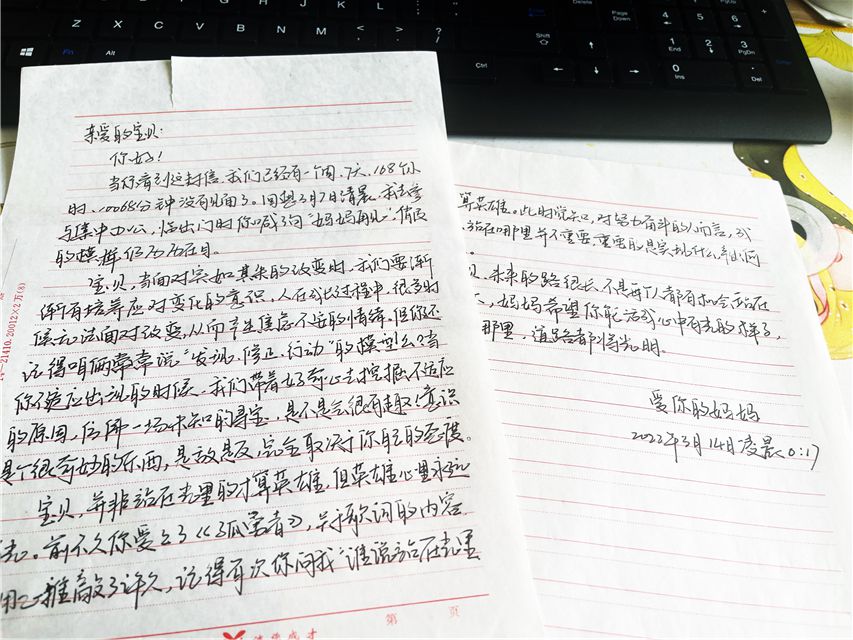 亲爱的宝贝:
你好!
当你看到这封信,我们已经有一个周、7天、168个小
时、10068分钟没有见面了。回想3月7日清晨,我去参
与集中办公,临出门时你喊了句"妈妈再见",俏皮
的模样仍历历在目。
宝贝,当面对突如其来的改变时,我们要渐
渐有培养应对变化的意识,人在成长过程中,很多时
候无法面对改变,从而产生焦虑不安的情绪。但你还
记得咱俩常常说"发现、修正、行动"的模型么?当
你不适应出现的时候,我们带着好奇心去挖掘不适应
的原因,仿佛一场未知的寻宝,是不是会很有趣!意识
是个很奇妙的东西,是敌是友,完全取决于你自己的态度。
宝贝,并非站在光里的才算英雄,但英雄心里永远
光。前不久你爱上了《孤勇者》,并于歌词的内容
推敲了许久,记得有次你问我"谁说站在光里
第 页
算英雄。此时觉知,对努力奋斗的人而言,我
站在哪里并不重要,重要的是实现什么,奔出何
未来的路很长,不是每个人都有机会站在
,妈妈希望你能活成心中有光的样子,
那里,道路都将光明。
爱你的妈妈
2022年3月14日凌晨0:17
21410.20012×2万(8)
Z X C V B N M < > ?
Fn Alt
Ctrl
Shift
Delete
Page Down
End
4 5 6
1 End
2
3 PgDn
0 Ins
Del